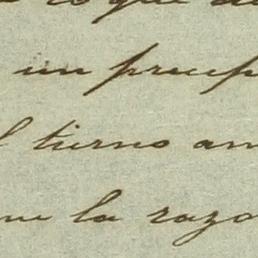 que
un precep
l tierno am
ue la razo